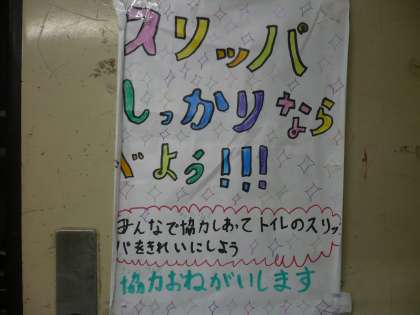 スリッパ
しっかりなら
べよう!!!
みんなで協力しあってトイレのスリッ
パをきれいにしよう
協力おねがいします